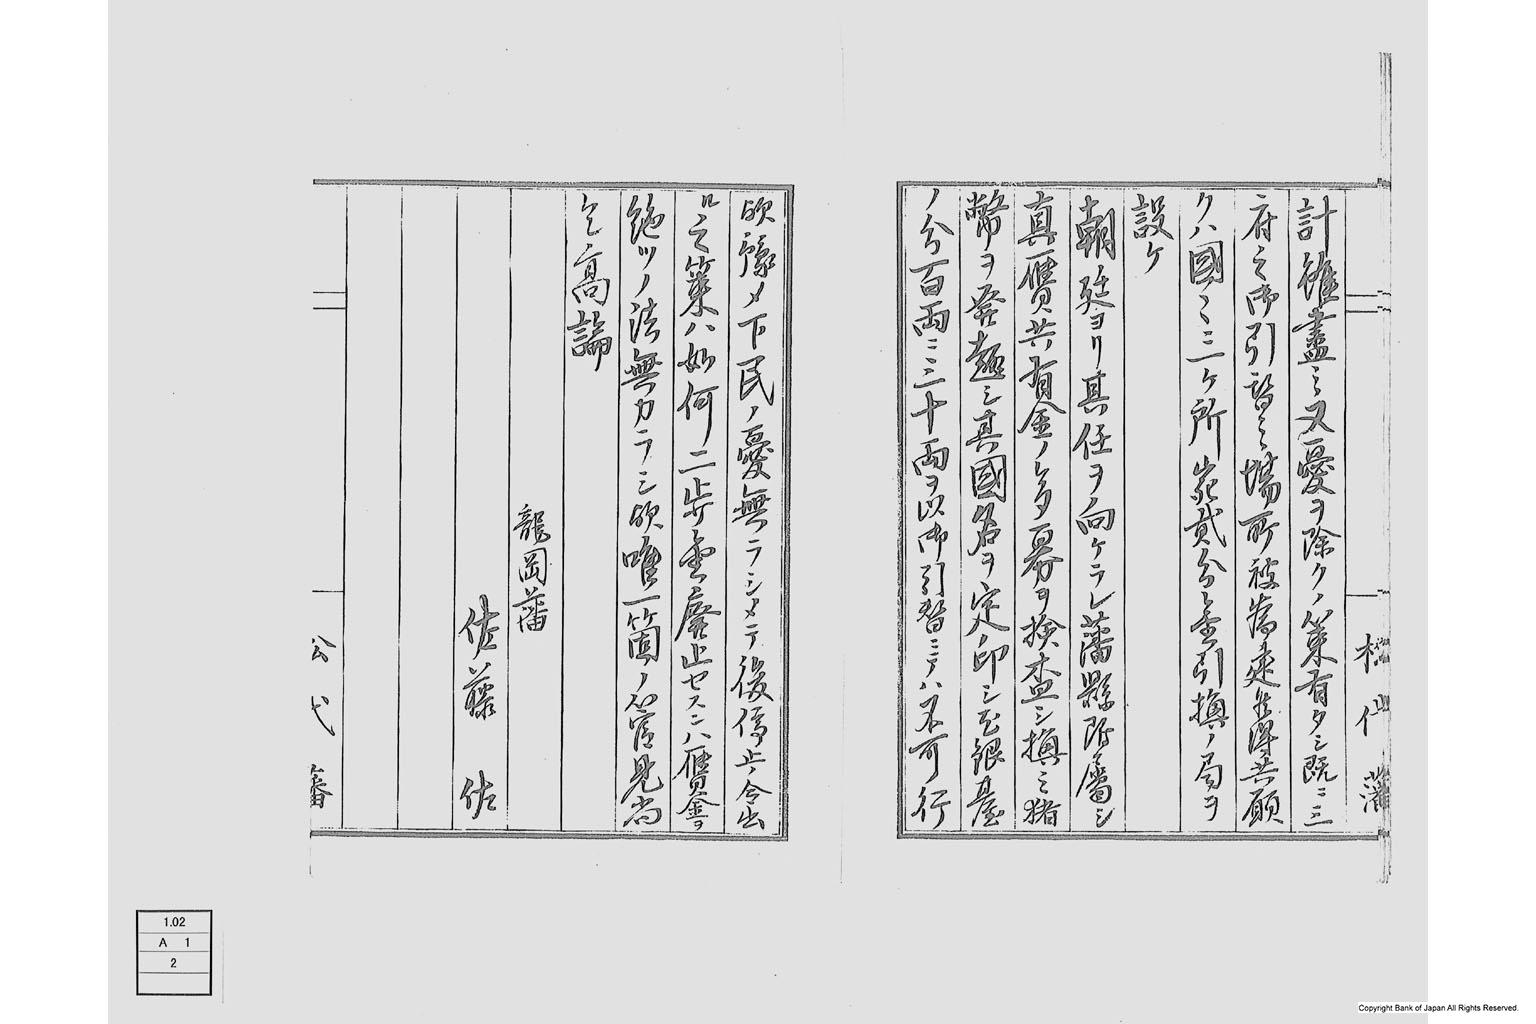 計雖盡シ又憂ヲ除クノ策有タシ既ニ三
府之御引替之場所被為建候得共願
クハ國々ニ一ケ所宛貳分金引換ノ局ヲ
設ケ
朝廷ヨリ其任ヲ向ケラレ藩縣附屬シ
真贋共有金ノ多募ヲ検査シ換ニ猪
幣ヲ発シ其國名ヲ定印シ銀臺
ノ分百両ニ三十両ヲ以御引替ニテハ不可行
欤豫メ下民ノ憂無ラシメテ後停止ノ令出
ルヽ之策ハ如何二歩金廃止セスンハ贋金ヲ
絶ツノ法無カラン欤唯一箇ノ管見尚
乞高論
龍岡藩
佐藤 佐
松代藩
藩
1.02
A 1
2
Copyright Bank of Japan All Rights Reserved.